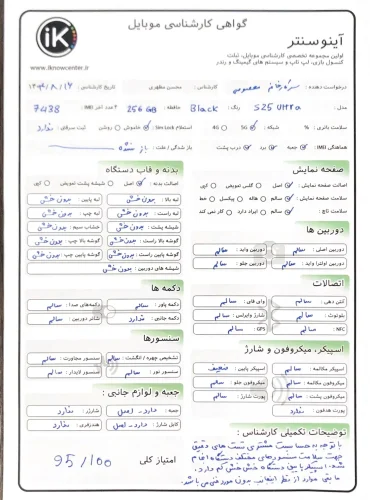 گواهی کارشناسی موبایل
آینوسنتر
اولین مجموعه تخصصی کارشناسی موبایل، تبلت
کنسول بازی، لپ تاپ و سیستم های گیمینگ و رندر
iK
www.iknowcenter.ir
درخواست دهنده : سرکار خانم معصومی
کارشناس : محسن مظهری
تاریخ کارشناسی :
مدل : S25 Ultra
رنگ : Black
حافظه : 256 GB
۴ عدد آخر IMEI : 7438
سلامت باتری : %
شبکه : 5G 4G
استعلام Sim Lock
خاموش روشن
ثبت سرقتی : ندارد
هماهنگی IMEI : جعبه برد درب پشت
باز شدگی / علت : باز نشده
صفحه نمایش
اصالت صفحه نمایش : اصل گلس تعویض کپی
سلامت صفحه نمایش : سالم هاله پیکسل خط
سلامت تاچ : سالم ایراد دارد کار نمی کند
دوربین ها
دوربین اصلی : سالم
دوربین واید : سالم
دوربین اولترا واید : سالم
دوربین جلو : سالم
اتصالات
آنتن دهی : سالم
وای فای : سالم
بلوتوث : سالم
شارژ وایرلس : سالم
NFC : سالم
GPS : سالم
اسپیکر، میکروفون و شارژ
اسپیکر مکالمه : سالم
اسپیکر پایین : ضعیف
میکروفون مکالمه : سالم
میکروفون جلو : سالم
میکروفون پشت : سالم
پورت شارژ : سالم
پورت هدفون : ندارد
بدنه و قاب دستگاه
اصالت بدنه : اصل شیشه پشت تعویض کپی
لبه بالا : بدون خش
لبه پایین : بدون خش
لبه راست : بدون خش
لبه چپ : بدون خش
شیشه پشت : بدون خش
خشاب سیم : بدون خش
گوشه بالا راست : بدون خش
گوشه بالا چپ : بدون خش
گوشه پایین راست : بدون خش
گوشه پایین چپ : بدون خش
شیشه های دوربین : بدون خش
دکمه ها
دکمه پاور : سالم
دکمه‌های صدا : سالم
دکمه جانبی : ندارد
شاتر دوربین : سالم
سنسورها
تشخیص چهره / انگشت : سالم
سنسور مجاورت : سالم
سنسور نور : سالم
سنسور لایدار : سالم
جعبه و لوازم جانبی :
جعبه : دارد اصل
شارژر : ندارد
کابل شارژ : دارد اصل
هندزفری : ندارد
امتیاز کلی 95/100
توضیحات تکمیلی کارشناس :
با توجه به حساسیت مشتری تست های دقیق
جهت سلامت سنسورهای مختلف دستگاه انجام
شد. اسپیکر پایین دستگاه خش خش کم دارد.
مابقی موارد از نظر اینجانب بدون مورد فنی می باشد.